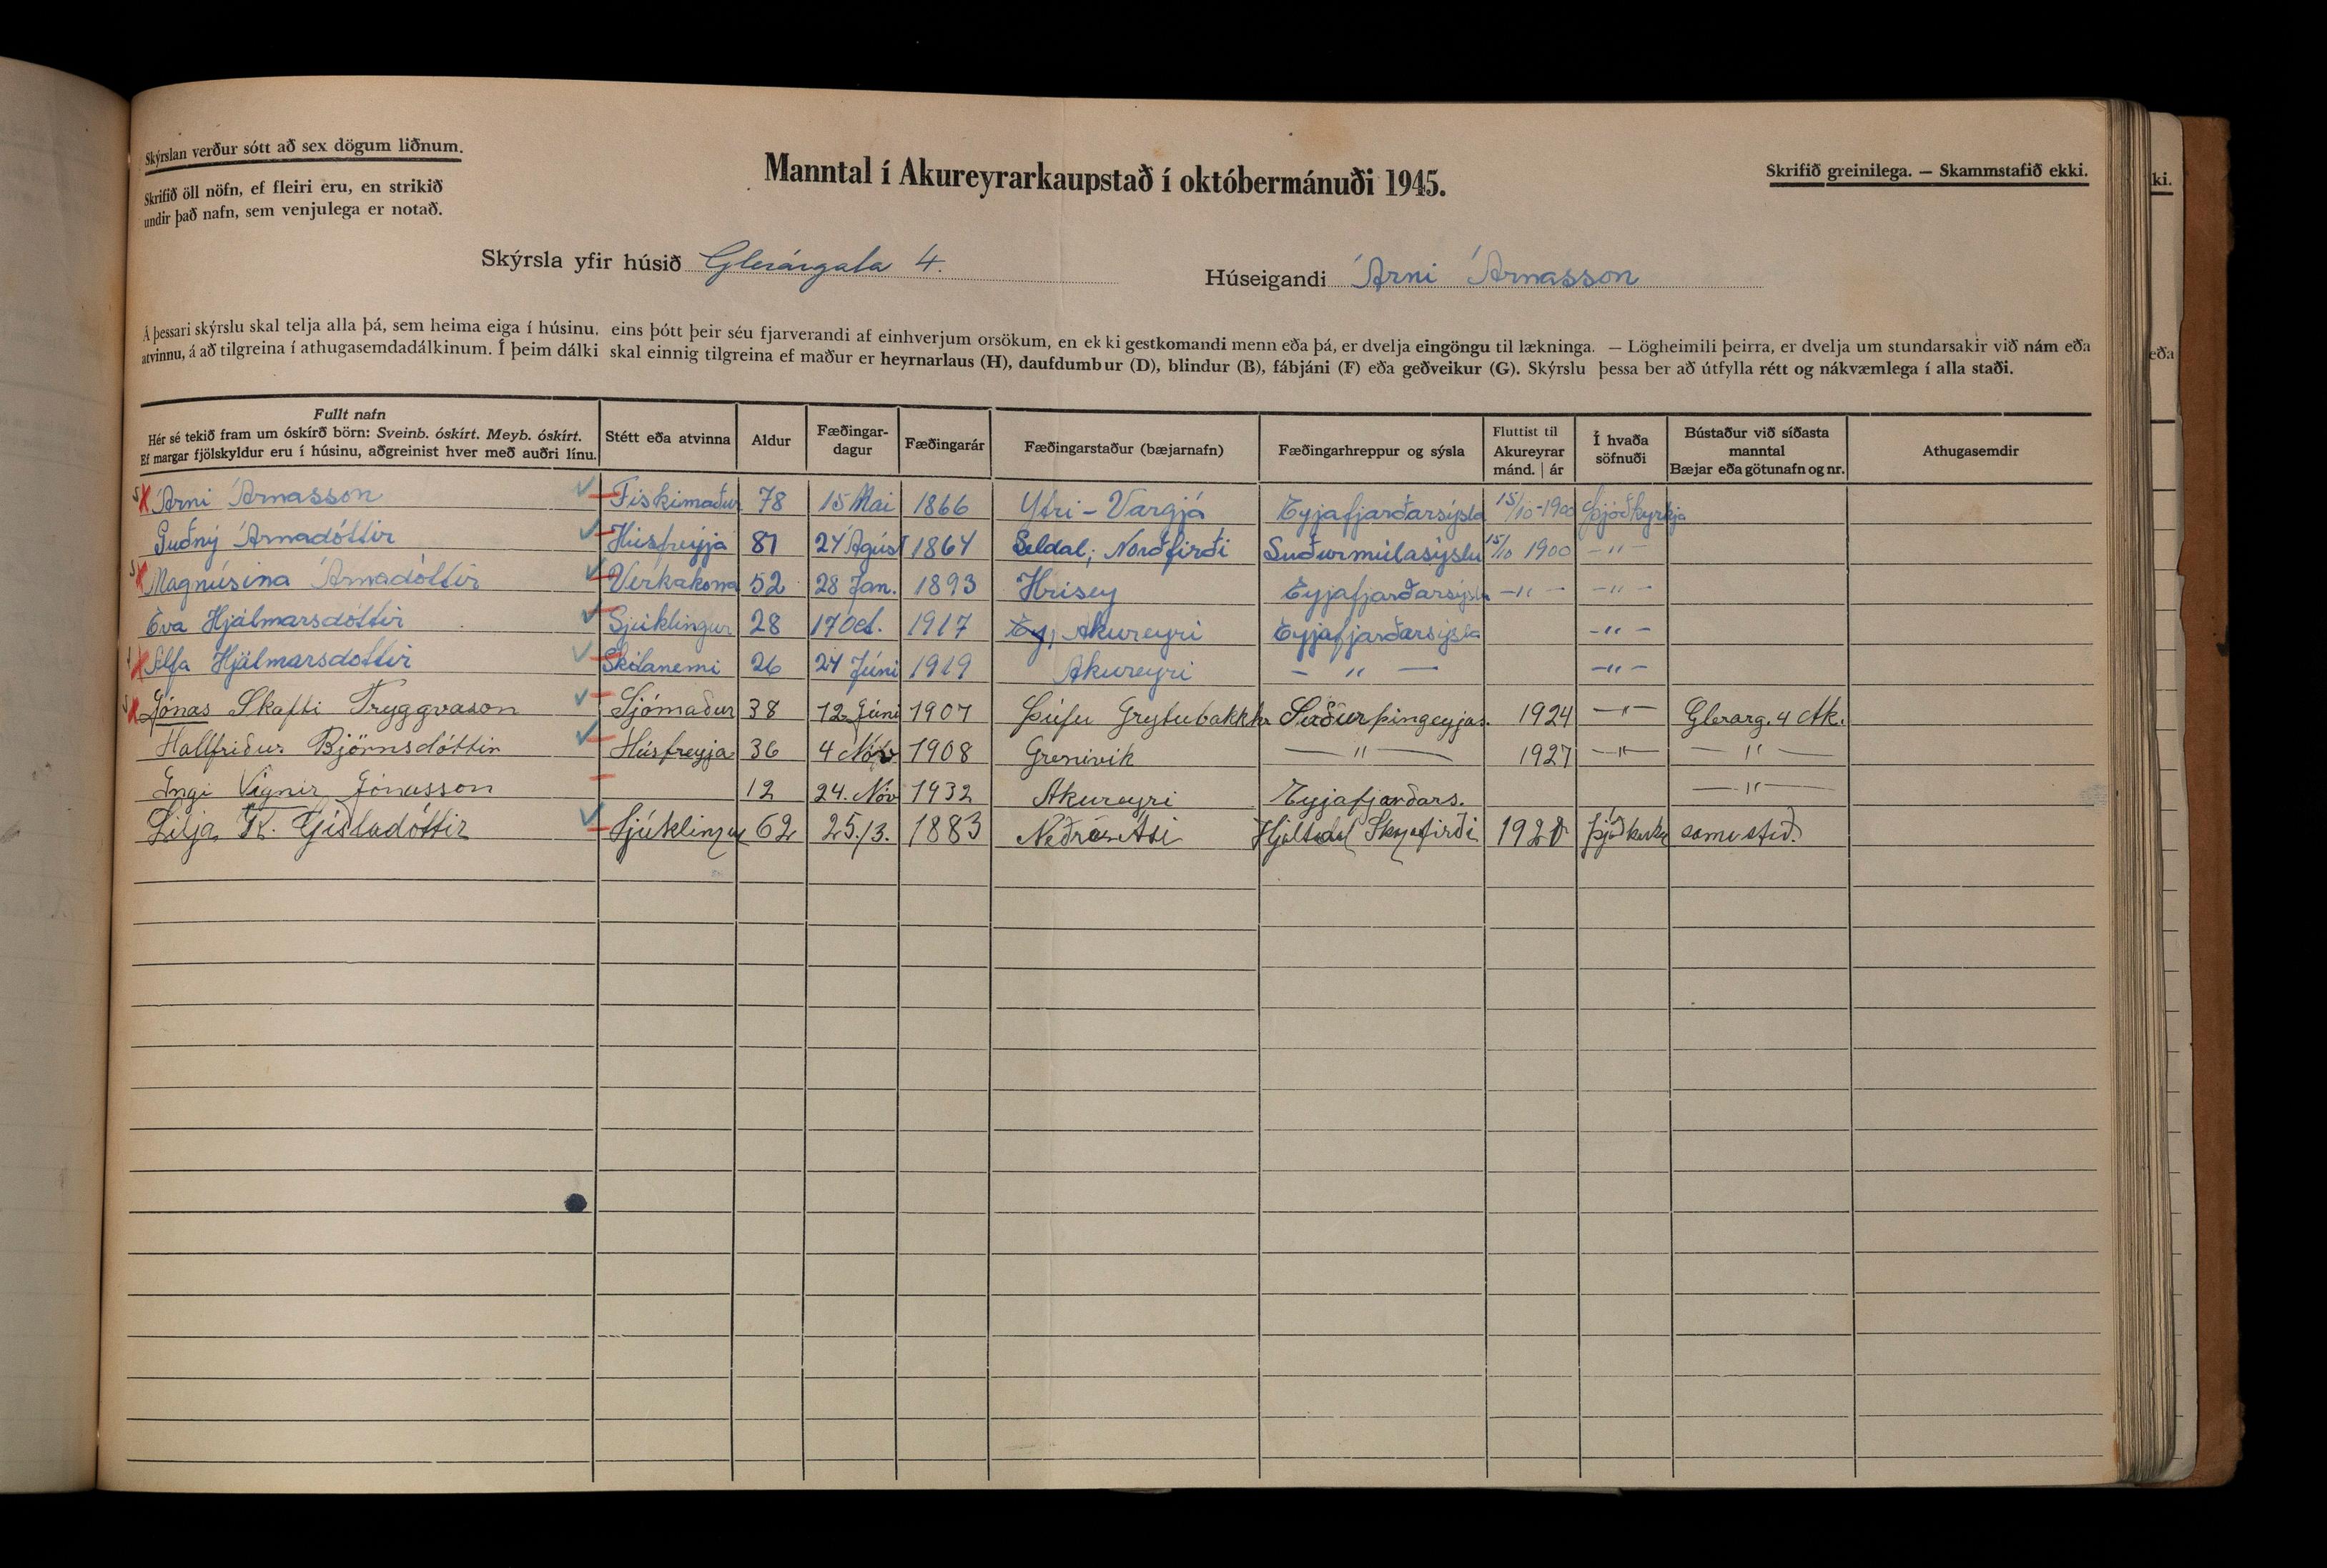 Skýrslan verður sótt að sex dögum liðnum.
Skrifið öll nöfn, ef fleiri eru, en strikið
undir það nafn, sem venjulega er notað.
Manntal í Akureyrarkaupstað í októbermánuði 1945.
Skrifið greinilega. — Skammstafið ekki.
Skýrsla yfir húsið Glerárgata 4.
Húseigandi Árni Árnasson
Á þessari skýrslu skal telja alla þá, sem heima eiga í húsinu, eins þótt þeir séu fjarverandi af einhverjum orsökum, en ekki gestkomandi menn eða þá, er dvelja eingöngu til lækninga. — Lögheimili þeirra, er dvelja um stundarsakir við nám eða
atvinnu, á að tilgreina í athugasemdadálkinum. Í þeim dálki skal einnig tilgreina ef maður er heyrnarlaus (H), daufdumbur (D), blindur (B), fábjáni (F) eða geðveikur (G). Skýrslu þessa ber að útfylla rétt og nákvæmlega í alla staði.
Fullt nafn
Hér sé tekið fram um óskírð börn: Sveinb. óskírt. Meyb. óskírt.
Ef margar fjölskyldur eru í húsinu, aðgreinist hver með auðri línu.
Stétt eða atvinna
Aldur
Fæðingar-
dagur
Fæðingarár
Fæðingarstaður (bæjarnafn)
Fæðingarhreppur og sýsla
Fluttist til
Akureyrar
mánd. | ár
Í hvaða
söfnuði
Bústaður við síðasta
manntal
Bæjar eða götunafn og nr.
Athugasemdir
Árni Árnasson Fiskimaður 78 15 Mai 1866 Ytri-Vargjá Eyjafjarðarsýsla 15/10-1900 Þjóðkyrkja
Guðný Árnadóttir Húsfreyja 81 24 Ágúst 1864 Seldal; Norðfirði Suðurmúlasýslu 15/10 1900 —"—
Magnúsína Árnadóttir Verkakona 52 28 Jan. 1893 Hrísey Eyjafjarðarsýsla —"— —"—
Eva Hjálmarsdóttir Sjúklingur 28 17 Oct. 1917 Akureyri Eyjafjarðarsýsla —"—
Alfa Hjálmarsdóttir Skólanemi 26 24 Júni 1919 Akureyri —"— —"—
Jónas Skafti Tryggvason Sjómaður 38 12 Júni 1907 Þúfu Grytubakkhr Suðurþingeyjas. 1924 —"— Glerarg. 4 Ak.
Hallfriður Björnsdóttir Húsfreyja 36 4 Nóv 1908 Grenivik —"— 1927 —"— —"—
Ingi Vignir Jónasson 12 24. Nóv 1932 Akureyri Eyjafjarðars. —"—
Lilja K. Gísladóttir Sjúklingur 62 25./3. 1883 Neðri Ási Hjaltadal Skagafirði Þjóðkirkj sama stað.
ki.
eða